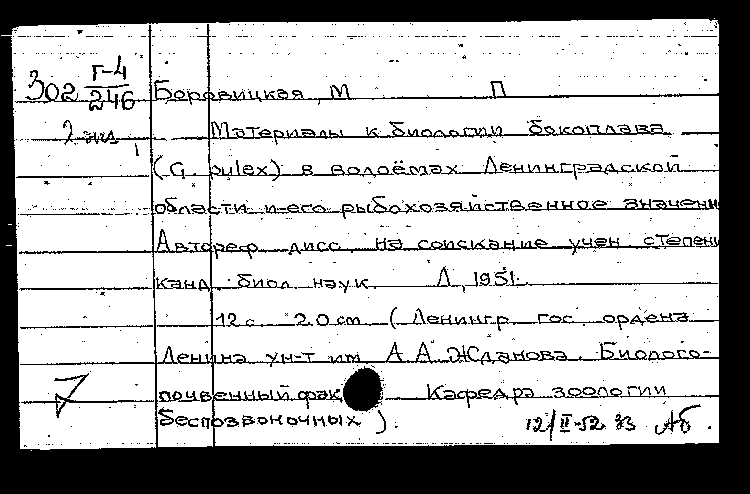 302 Г-4/246 Боровицкая, М П
2 экз. Материалы к биологии бокоплава
(G. pulex) в водоёмах Ленинградской
области и его рыбохозяйственное значени
Автореф дисс. на соискание учен степени
канд. биол наук. Л, 1951.
12 с. 20 см (Ленингр гос. ордена
Ленина ун-т им. А А Жданова. Биолого-
почвенный фак Кафедра зоологии
беспозвоночных).
12/II-52